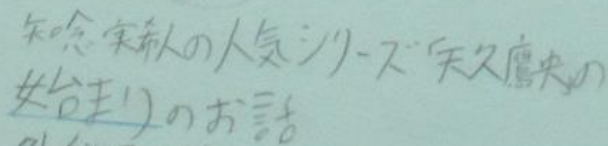 知念実希人の人気シリーズ「天久鷹央の
始まりのお話